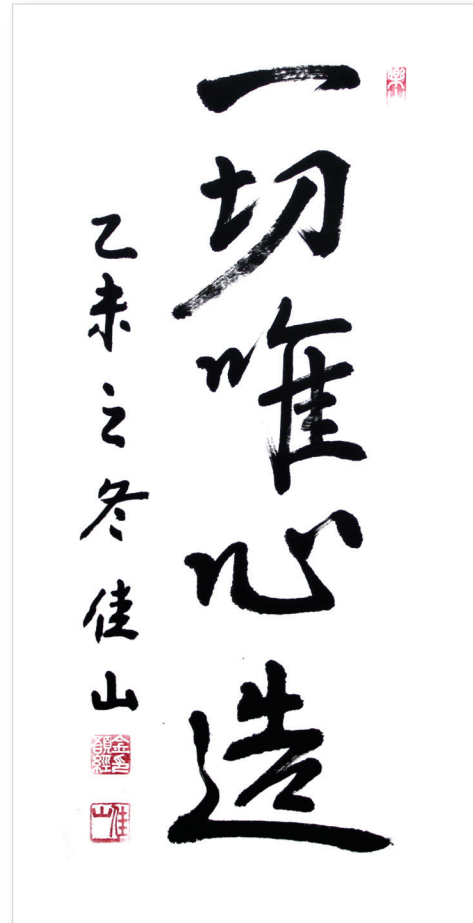 一切唯心造
乙未之冬佳山
佳山